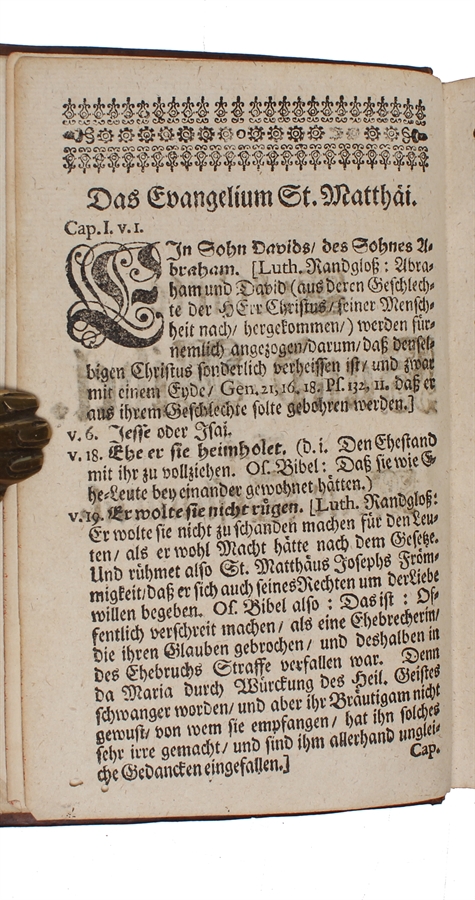 Das Evangelium St. Matthäi.
Cap. I. v. 1.
EJn Sohn Davids/ des Sohnes A-
braham. [Luth. Randgloß: Abra-
ham und David (aus deren Geschlech-
te der HErr Christus/ seiner Mensch-
heit nach/ hergekommen/) werden für-
nemlich angezogen/darum/daß densel-
bigen Christus sonderlich verheissen ist/ und zwar
mit einem Eyde/ Gen. 21, 16. 18. Ps. 132, 11. daß er
aus ihrem Geschlechte solte gebohren werden.]
v. 6. Jesse oder Isai.
v. 18. Ehe er sie heimholet. (d. i. Den Ehestand
mit ihr zu vollziehen. Os. Bibel: Daß sie wie E-
he-Leute bey einander gewohnet hätten.)
v. 19. Er wolte sie nicht rügen. [Luth. Randgloß:
Er wolte sie nicht zu schanden machen für den Leu-
ten/ als er wohl Macht hätte nach dem Gesetze.
Und rühmet also St. Matthäus Josephs Fröm-
migkeit/daß er sich auch seines Rechten um der Liebe
willen begeben. Os. Bibel also: Das ist: Of-
fentlich verschreit machen/ als eine Ehebrecherin/
die ihren Glauben gebrochen/ und deshalben in
des Ehebruchs Straffe verfallen war. Denn
da Maria durch Würckung des Heil. Geistes
schwanger worden/ und aber ihr Bräutigam nicht
gewust/ von wem sie empfangen/ hat ihn solches
sehr irre gemacht/ und sind ihm allerhand unglei-
che Gedancken eingefallen.]
Cap.